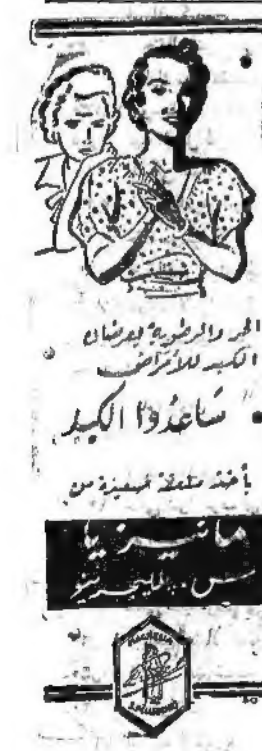 الحر والرطوبة يعرضان
الكبد للأمراض
ساعدوا الكبد
بأخذ ملعقة صغيرة من
مانيزيا
س. بلليجرينو
MAGNESIA
S. PELLEGRINO